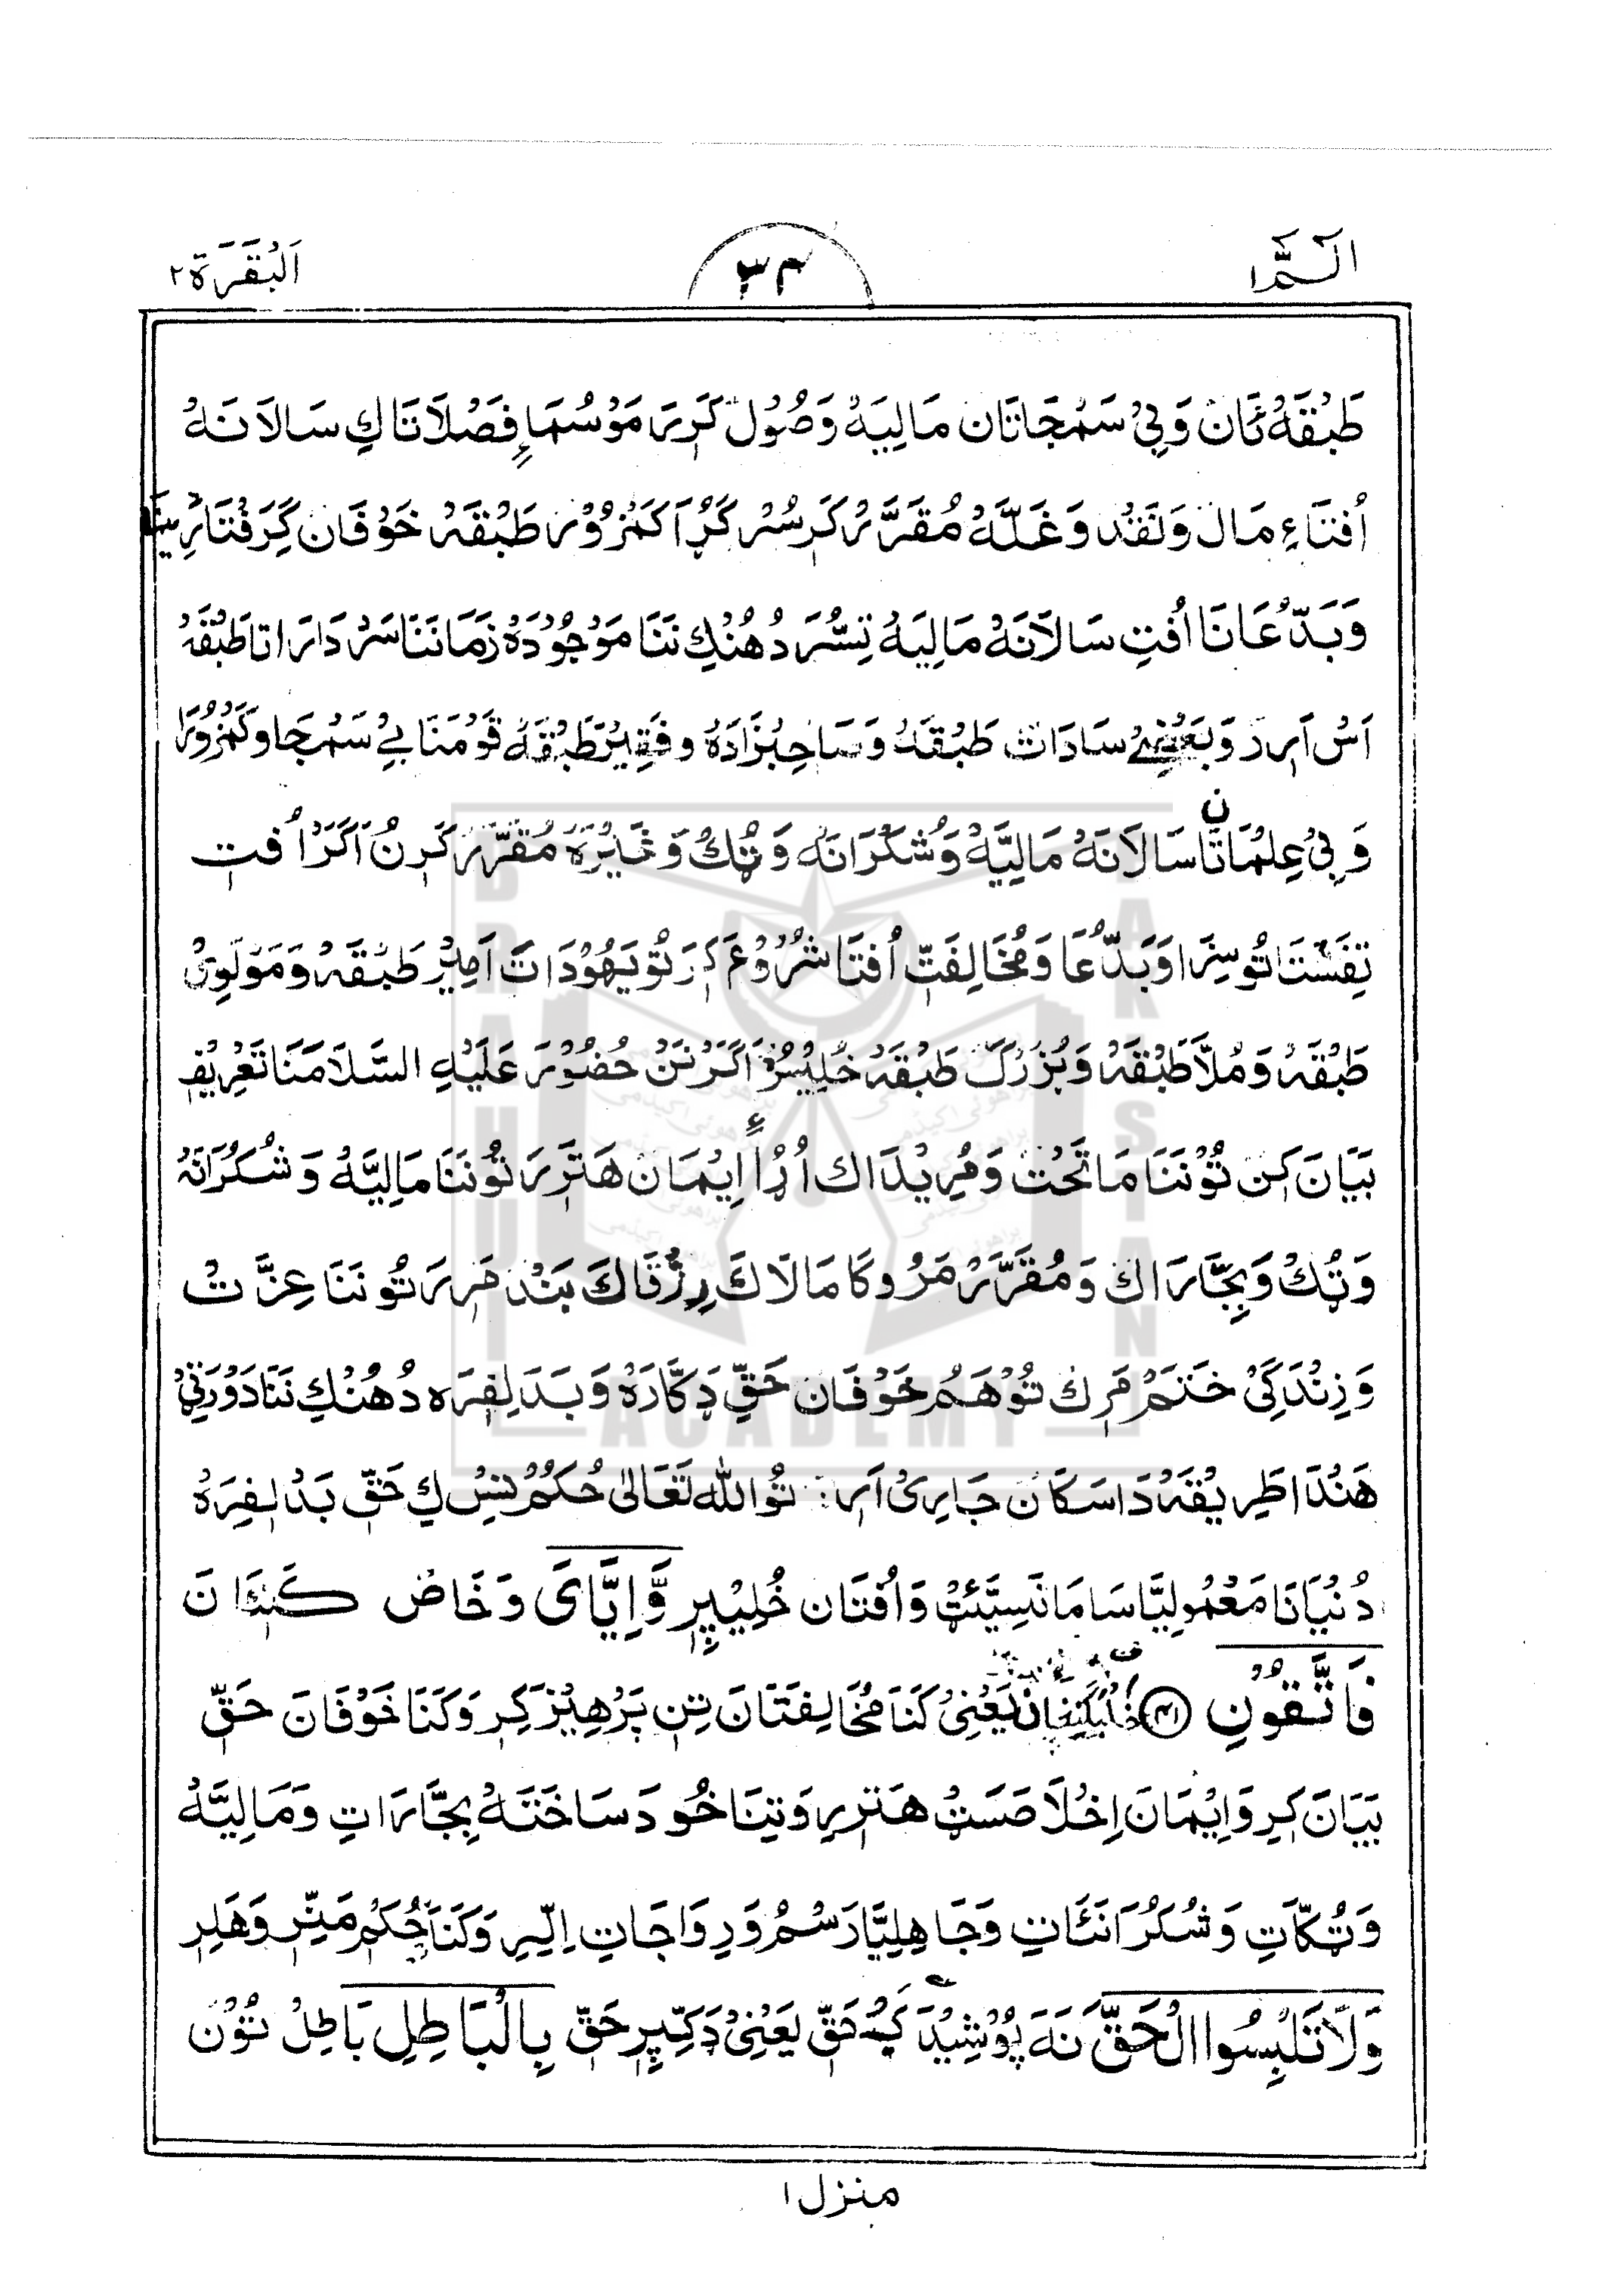 الٓمّٓ۱ ۳۴ اَلْبَقَرَة۲
طَبْقَهْ ئَان وَبِیْ سَمْجَاتَان مَالِیَهْ وَصُول کَرِیرَ مَوْسُمَاءِ فَصْلَاتَاکِ سَالَانَهْ
اُفتَاءِ مَال وَنَقْد وَغَلَّهْ مُقَرَّرْ کَرِسُرْ کَڑِ اَکَمْزُوْر طَبْقَهْ خَوْفَان گِرَفْتَارِ
وَبَدّعَانَا اُفتِ سَالَانَهْ مَالِیَهْ تِسُّرَ دُهُنْکِ نَنَا مَوْجُوْدَهْ زَمَانَنَا سَرْدَارَاتَا طَبْقَهْ
اَسْ اَرِرَ وَبَعْضِیْ سَادَات طَبْقَهْ وَصَاحِبْزَادَهْ وفَقِیْر طَبْقَهْ قَوْمَنَا بِیْ سَمْجَا وکَمْزُوْرَا
وَبِیْ عِلْمَاتَان سَالَانَهْ مَالِیَّهْ وَشُکْرَانَه وَتُپْکْ وَغَیْرَهْ مُقَرَّرْ کَرِنُ اَکَرْ اُفتِ
تِفَسْتَا تُوسِزَا وَبَدّعَا وَمُخَالِفَتِ اُفتَا شُرُوْعَ کِرَ تُویَهُوْدَاتَ اَمِیْر طَبْقَهْ وَمَوْلَوِیْ
طَبْقَهْ وَمُلَّا طَبْقَهْ وَبُزْرَگ طَبْقَهْ خُلِیْسُرْ اَکَرْ نَنْ حُضُوْرَ عَلَیْهِ السَّلَامَنَا تَعْرِیْف
بَیَانَ کِن تُوْ نَنَا مَاتَحْت وَمُرِیْدَاک اُڑَاءِ اِیْمَان هَتَرِرَ تُو نَنَا مَالِیَّهْ وَشُکْرَانَهْ
وَتُپْکْ وَبِجَّارَاک وَمُقَرَّرْ مَرُوکَا مَالَاک رِزْقَاکَ بَنْد مَرِرَ تُو نَنَا عِزَّتْ
وَزِنْدَگِیْ خَتَمْ مَرِک تُوْهَمْ خَوْفَان حَقِّ دَکَّارَهْ وَبَدَلِفِرَه دُهُنْکِ نَنَا دَوْرَتِیْ
هَنْدَا طَرِیْقَهْ دَاسَکَان جَارِیْ اَرِ: تُو اللّٰه تَعَالٰی حُکَمْ نِسْ کِ حَقِّ بَدْلِفِرَهْ
دُنْیَانَا مَعْمُولِیَّا سَامَانَسِیَّتْ وَاُفْتَان خُلِیْپِرِ وَّاِیَّایَ وَخَاص کَنَئَانَ
فَاتَّقُوْنِ ﴿۴۱﴾ یَعْنِیْ کَنَا مُخَالِفَتَانَ تِن پَرْهِیْز کِرِ وَکَنَا خَوْفَانَ حَقِّ
بَیَانَ کِرِ وَاِیْمَانَ اِخْلَاصَسَتْ هَتَرِرِ وَتِنَا خُود سَاخْتَهْ بِجَّارَاتِ وَمَالِیَّهْ
وَتُپْکَّاتِ وَشُکْرَانَئَاتِ وَجَاهِلِیَّا رَسْمُ وَرِوَاجَاتِ اِلِّرِ وَکَنَا حُکَمْ مَنِّرِ وَهَلِرِ
وَلَا تَلْبِسُوا الْحَقَّ نَهَ پُوْشِیْدَ کَبُ حَقِّ یَعْنِیْ دَکِّپِرِ حَقِّ بِالْبَاطِلِ بَاطِلْ تُوْن
منزل۱
BRAHUI ACADEMY PAKISTAN